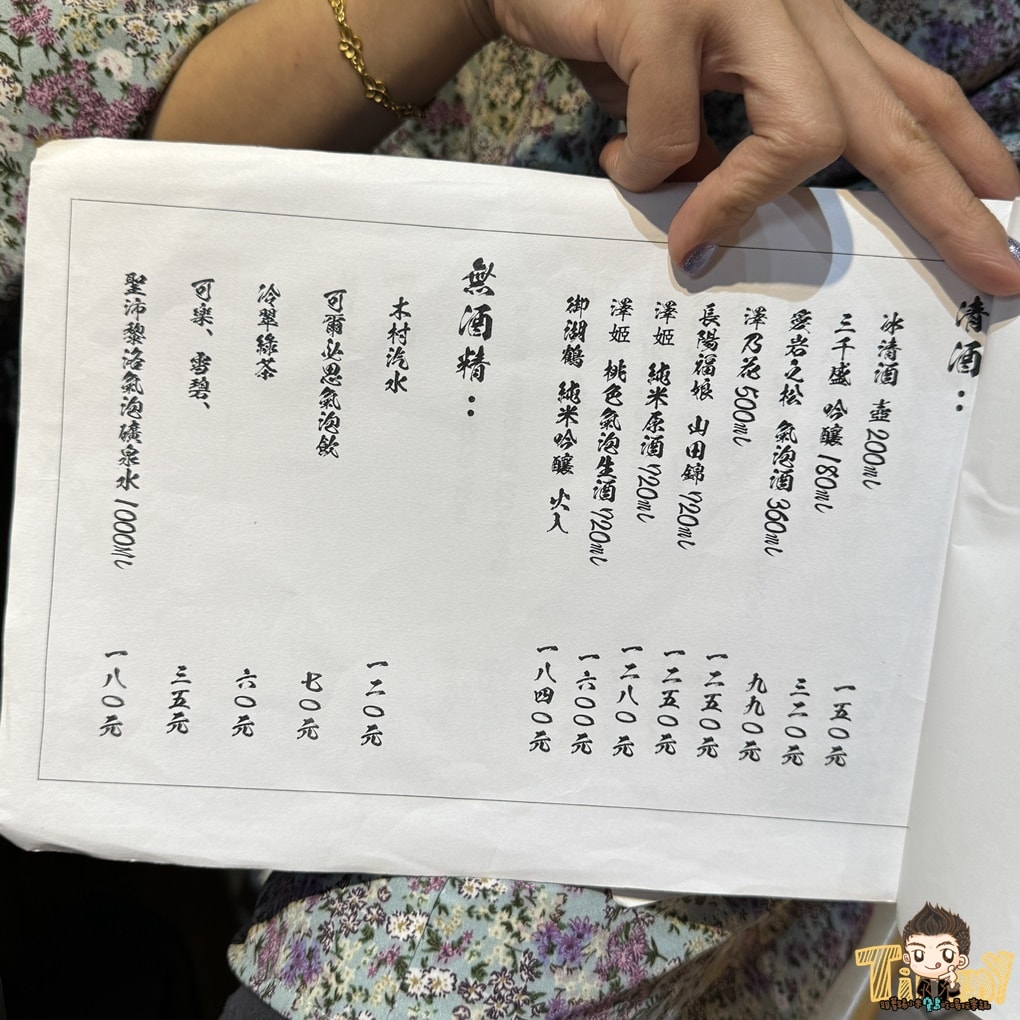 清酒：
冰清酒 壺 200ml 一五０元
三千盛 吟釀 180ml 三二０元
愛岩之松 氣泡酒 360ml 九九０元
澤乃花 500ml 一二五０元
長陽福娘 山田錦 720ml 一二五０元
澤姬 純米原酒 720ml 一二八０元
澤姬 桃色氣泡生酒 720ml 一六００元
御湖鶴 純米吟釀 火入 一八四０元
無酒精：
木村汽水 一二０元
可爾必思氣泡飲 七０元
冷翠綠茶 六０元
可樂、雪碧、 三五元
聖沛黎洛氣泡礦泉水 1000ml 一八０元